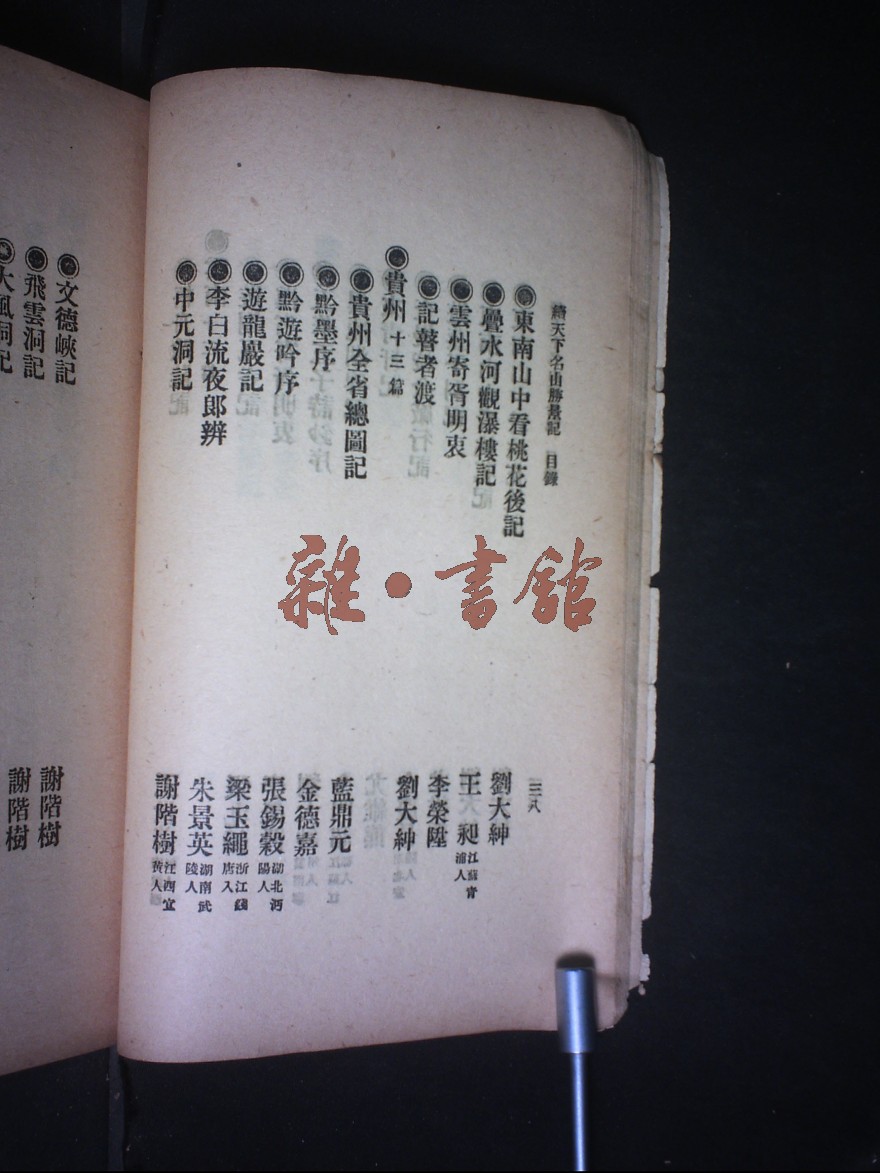 續天下名山勝景記 目錄 三八
東南山中看桃花後記 劉大紳
疊水河觀瀑樓記 王昶 江蘇青浦人
雲州寄胥明衷 李榮陞
記瞽者渡 劉大紳
貴州 十三篇
貴州全省總圖記 藍鼎元
黔墨序 金德嘉
黔遊吟序 張錫穀 湖北沔陽人
遊龍巖記 梁玉繩 浙江錢唐人
李白流夜郎辨 朱景英 湖南武陵人
中元洞記 謝階樹 江西宜黃人
文德峽記 謝階樹
飛雲洞記 謝階樹
大風洞記
雜·書館